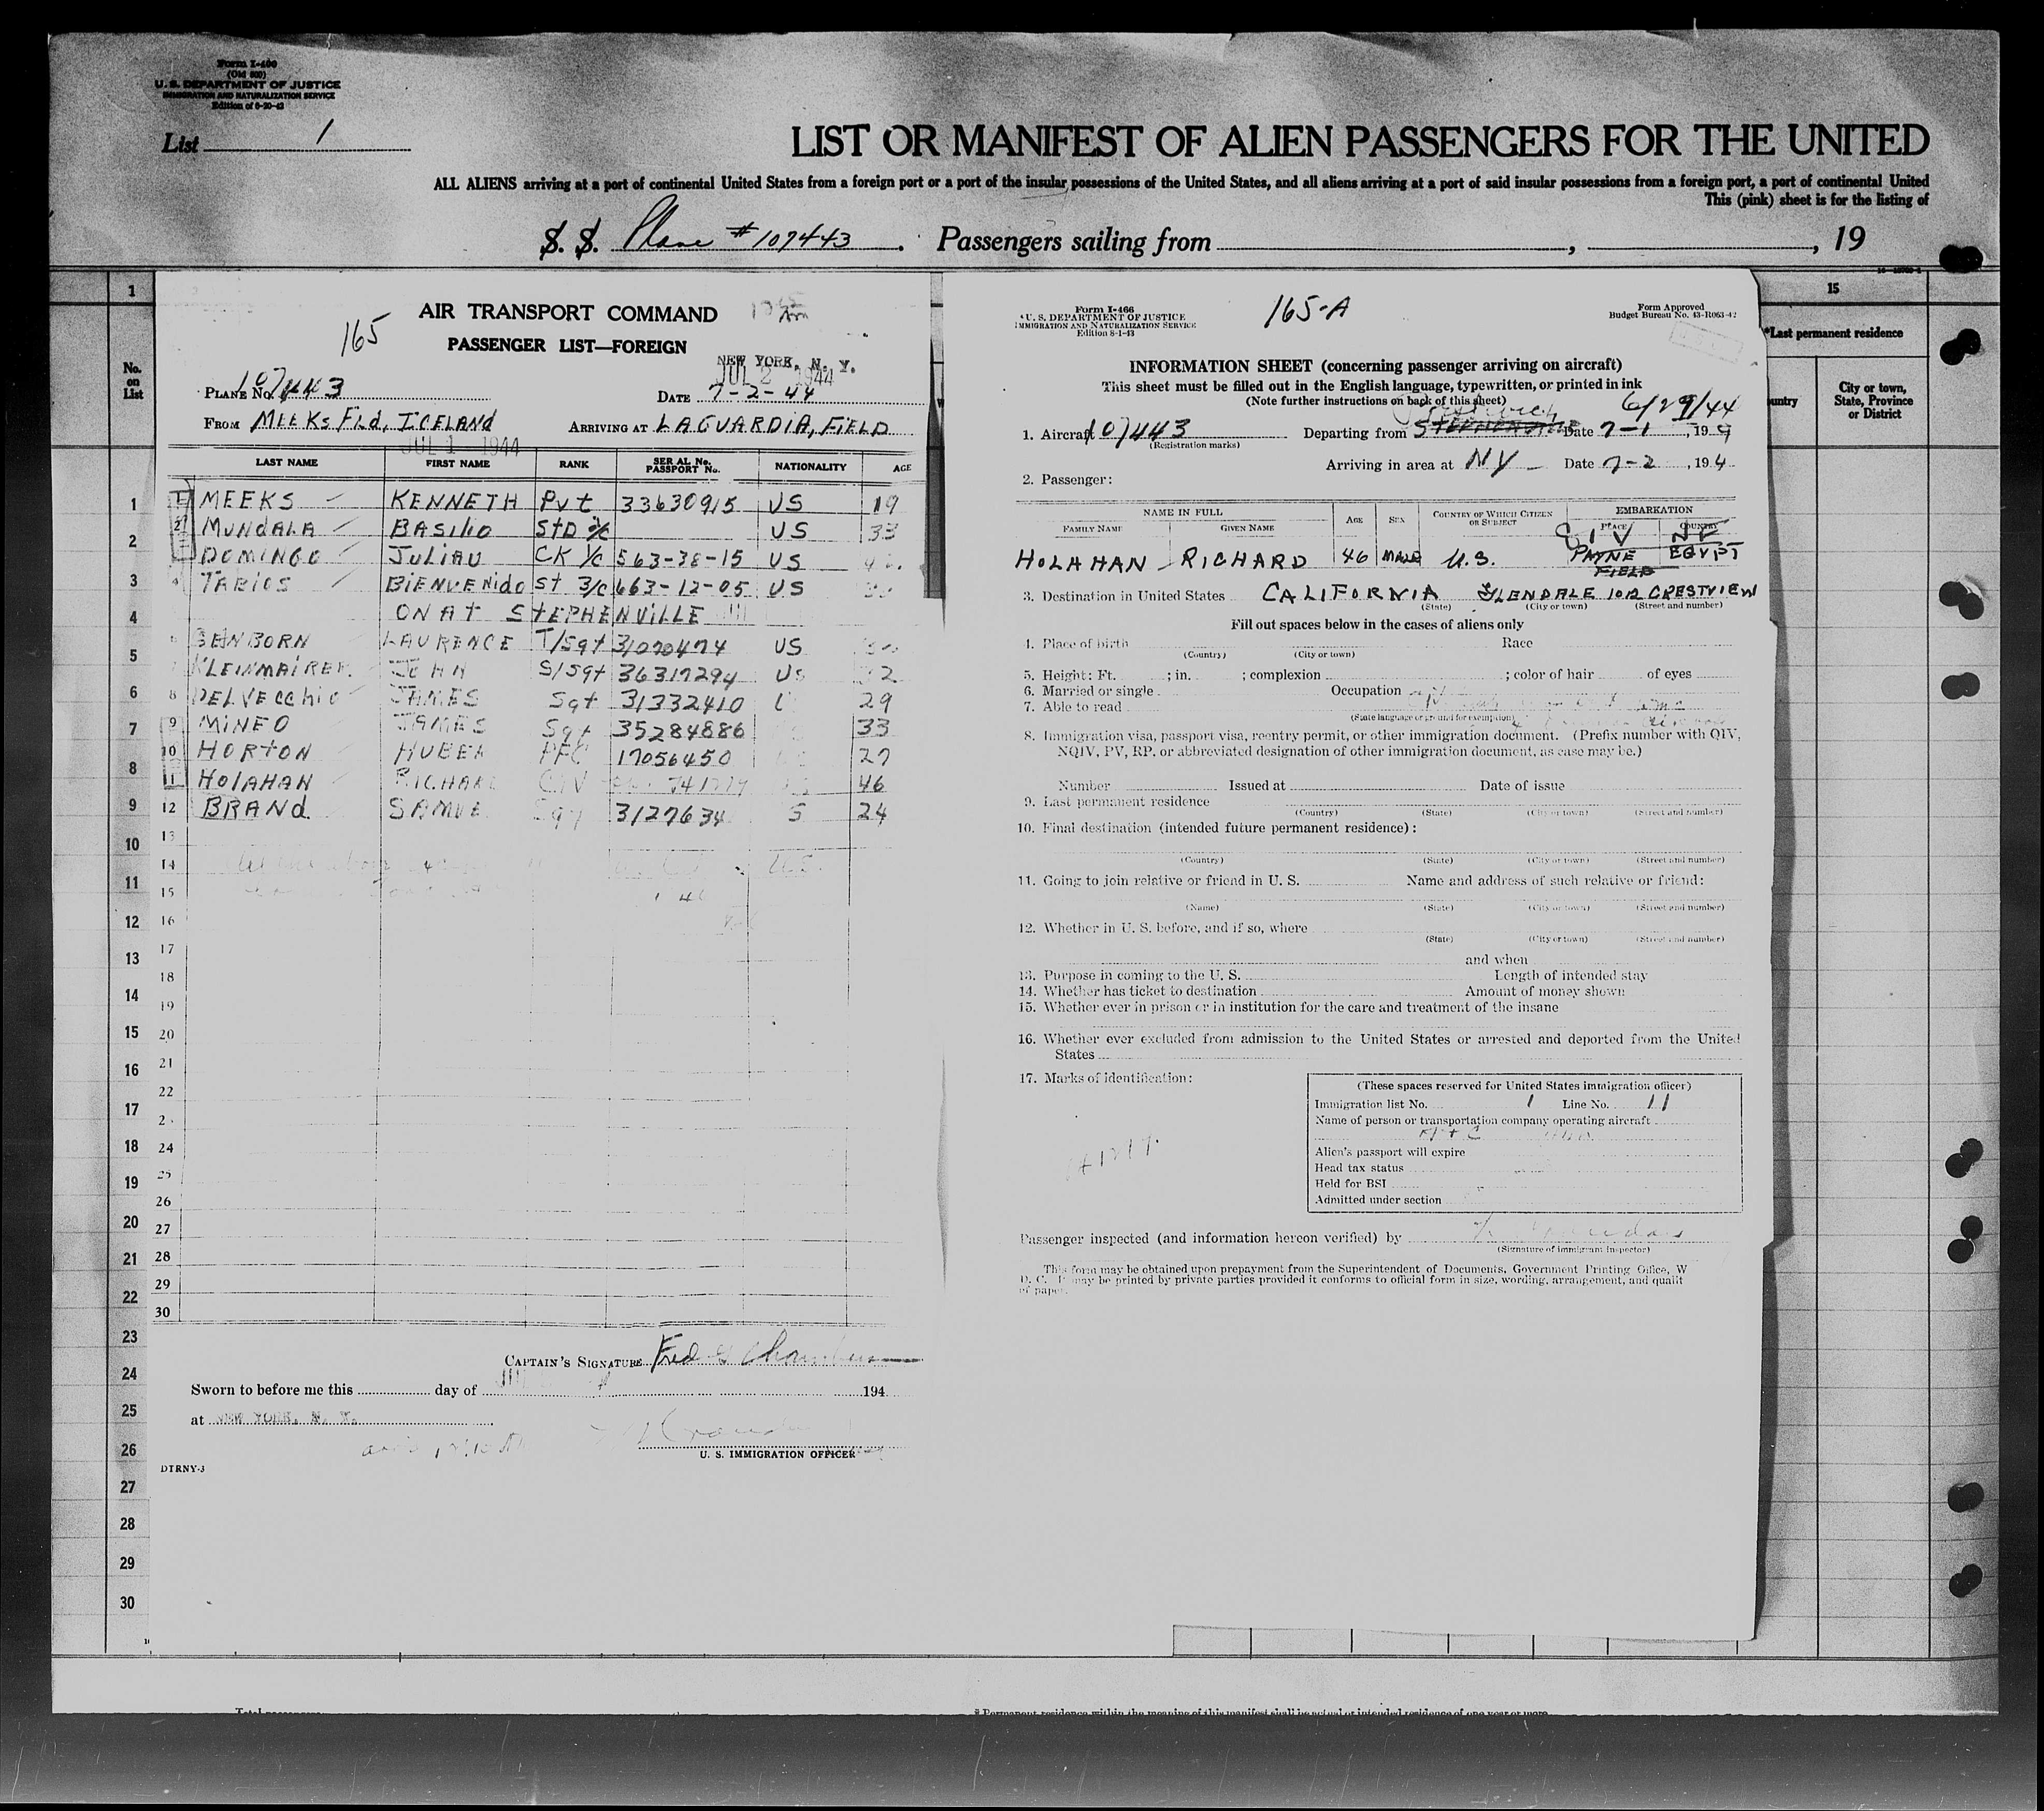 Form I-400
(Old 500)
U. S. DEPARTMENT OF JUSTICE
IMMIGRATION AND NATURALIZATION SERVICE
Edition of 8-20-43
List 1
LIST OR MANIFEST OF ALIEN PASSENGERS FOR THE UNITED
ALL ALIENS arriving at a port of continental United States from a foreign port or a port of the insular possessions of the United States, and all aliens arriving at a port of said insular possessions from a foreign port, a port of continental United
This (pink) sheet is for the listing of
S. S. Plane # 107443 . Passengers sailing from , , 19
1
No. on List
1
2
3
4
5
6
7
8
9
10
11
12
13
14
15
16
17
18
19
20
21
22
23
24
25
26
27
28
29
30
AIR TRANSPORT COMMAND
165
PASSENGER LIST—FOREIGN
NEW YORK, N. Y.
JUL 2 1944
PLANE No. 107443 DATE 7-2-44
FROM MEEKS FLd, ICELANd ARRIVING AT LAGUARDIA, FIELD
JUL 1 1944
LAST NAME FIRST NAME RANK SERIAL No. PASSPORT No. NATIONALITY AGE
1 MEEKS KENNETH Pvt 33630915 US 19
2 MUNDALA BASILIO StD 2/c US 33
DOMINGO JULIAU CK 1/c 563-38-15 US
4 TABIOS BIENVENIdo St 3/c 663-12-05 US
ON AT STEPHENVILLE
SENBORN LAURENCE T/Sgt 31070474 US
KLEINMAIRER JOHN S/Sgt 36317294 US 32
8 DELVECChIO JAMES Sgt 31332410 29
9 MINEO JAMES Sgt 35284886 33
10 HORTON HUBER PFC 17056450 27
11 HOLAHAN RICHARD CIV 46
12 BRANd. SAMUE Sgt 3127634 S 24
13
14
15
16
17
18
19
20
21
22
2
24
25
26
27
28
29
30
CAPTAIN'S SIGNATURE Fred G Chambers
Sworn to before me this day of 194
at NEW YORK, N. Y.
U. S. IMMIGRATION OFFICER
DTRNY-3
Form I-466
U. S. DEPARTMENT OF JUSTICE
IMMIGRATION AND NATURALIZATION SERVICE
Edition 8-1-43
165-A
Form Approved
Budget Bureau No. 43-R063-42
INFORMATION SHEET (concerning passenger arriving on aircraft)
This sheet must be filled out in the English language, typewritten, or printed in ink
(Note further instructions on back of this sheet)
Prestwick 6/29/44
1. Aircraft 107443 Departing from STEPHENVILLE Date 7-1 , 194
(Registration marks)
Arriving in area at NY Date 7-2 , 194
2. Passenger:
NAME IN FULL AGE SEX COUNTRY OF WHICH CITIZEN OR SUBJECT EMBARKATION
FAMILY NAME GIVEN NAME PLACE COUNTRY
HOLAHAN RICHARD 46 MALE U.S. PAYNE FIELD EGYPT
3. Destination in United States CALIFORNIA GLENDALE 1012 CRESTVIEW
(State) (City or town) (Street and number)
Fill out spaces below in the cases of aliens only
4. Place of birth Race
(Country) (City or town)
5. Height: Ft. ; in. ; complexion ; color of hair of eyes
6. Married or single Occupation
7. Able to read
(State language or ground for exemption)
8. Immigration visa, passport visa, reentry permit, or other immigration document. (Prefix number with QIV,
NQIV, PV, RP, or abbreviated designation of other immigration document, as case may be.)
Number Issued at Date of issue
9. Last permanent residence
(Country) (State) (City or town) (Street and number)
10. Final destination (intended future permanent residence):
(Country) (State) (City or town) (Street and number)
11. Going to join relative or friend in U. S. Name and address of such relative or friend:
(Name) (State) (City or town) (Street and number)
12. Whether in U. S. before, and if so, where
(State) (City or town) (Street and number)
and when
13. Purpose in coming to the U. S. Length of intended stay
14. Whether has ticket to destination Amount of money shown
15. Whether ever in prison or in institution for the care and treatment of the insane
16. Whether ever excluded from admission to the United States or arrested and deported from the United
States
17. Marks of identification:
(These spaces reserved for United States immigration officer)
Immigration list No. 1 Line No. 11
Name of person or transportation company operating aircraft
Alien's passport will expire
Head tax status
Held for BSI
Admitted under section
Passenger inspected (and information hereon verified) by
(Signature of immigrant inspector)
This form may be obtained upon prepayment from the Superintendent of Documents, Government Printing Office, W
D. C. It may be printed by private parties provided it conforms to official form in size, wording, arrangement, and qualit
of paper.
15
*Last permanent residence
untry
City or town, State, Province or District
* Permanent residence within the meaning of this manifest shall be actual or intended residence of one year or more